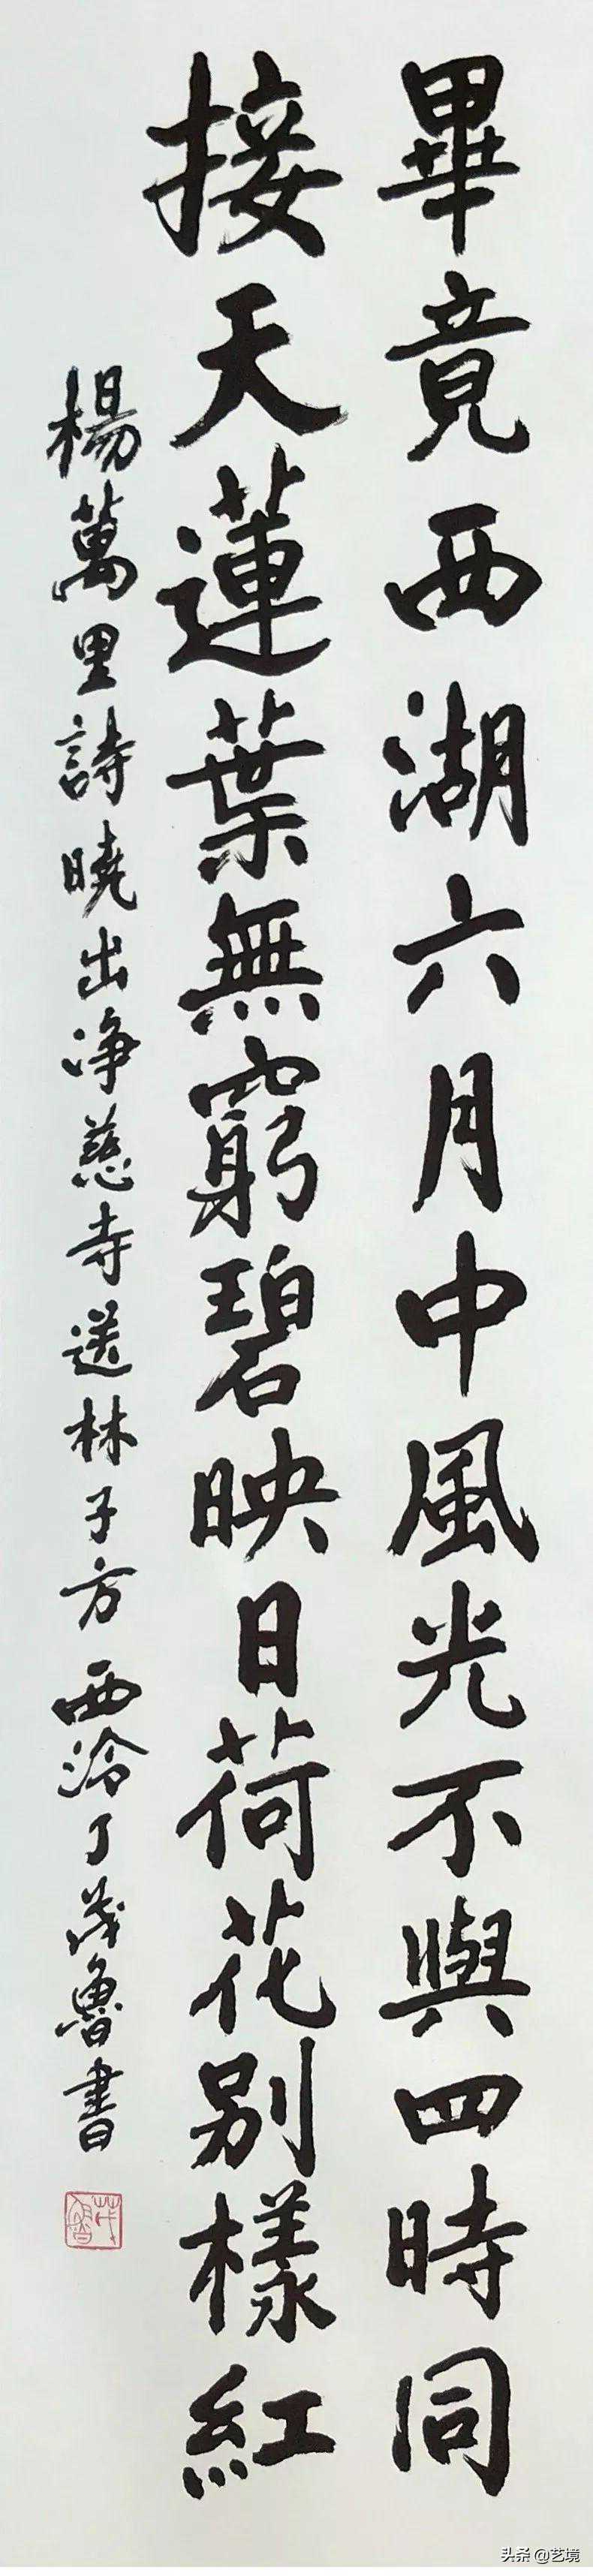 畢竟西湖六月中風光不與四時同
接天蓮葉無窮碧映日荷花别樣紅
楊萬里詩曉出净慈寺送林子方 西泠丁茂魯書
茂魯
头条 @艺境